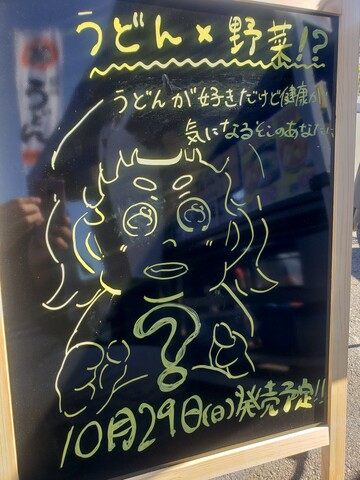 うどん×野菜!?
うどんが好きだけど健康が
気になるそこのあなたに
?
10月29日(日)発売予定!!
うどん